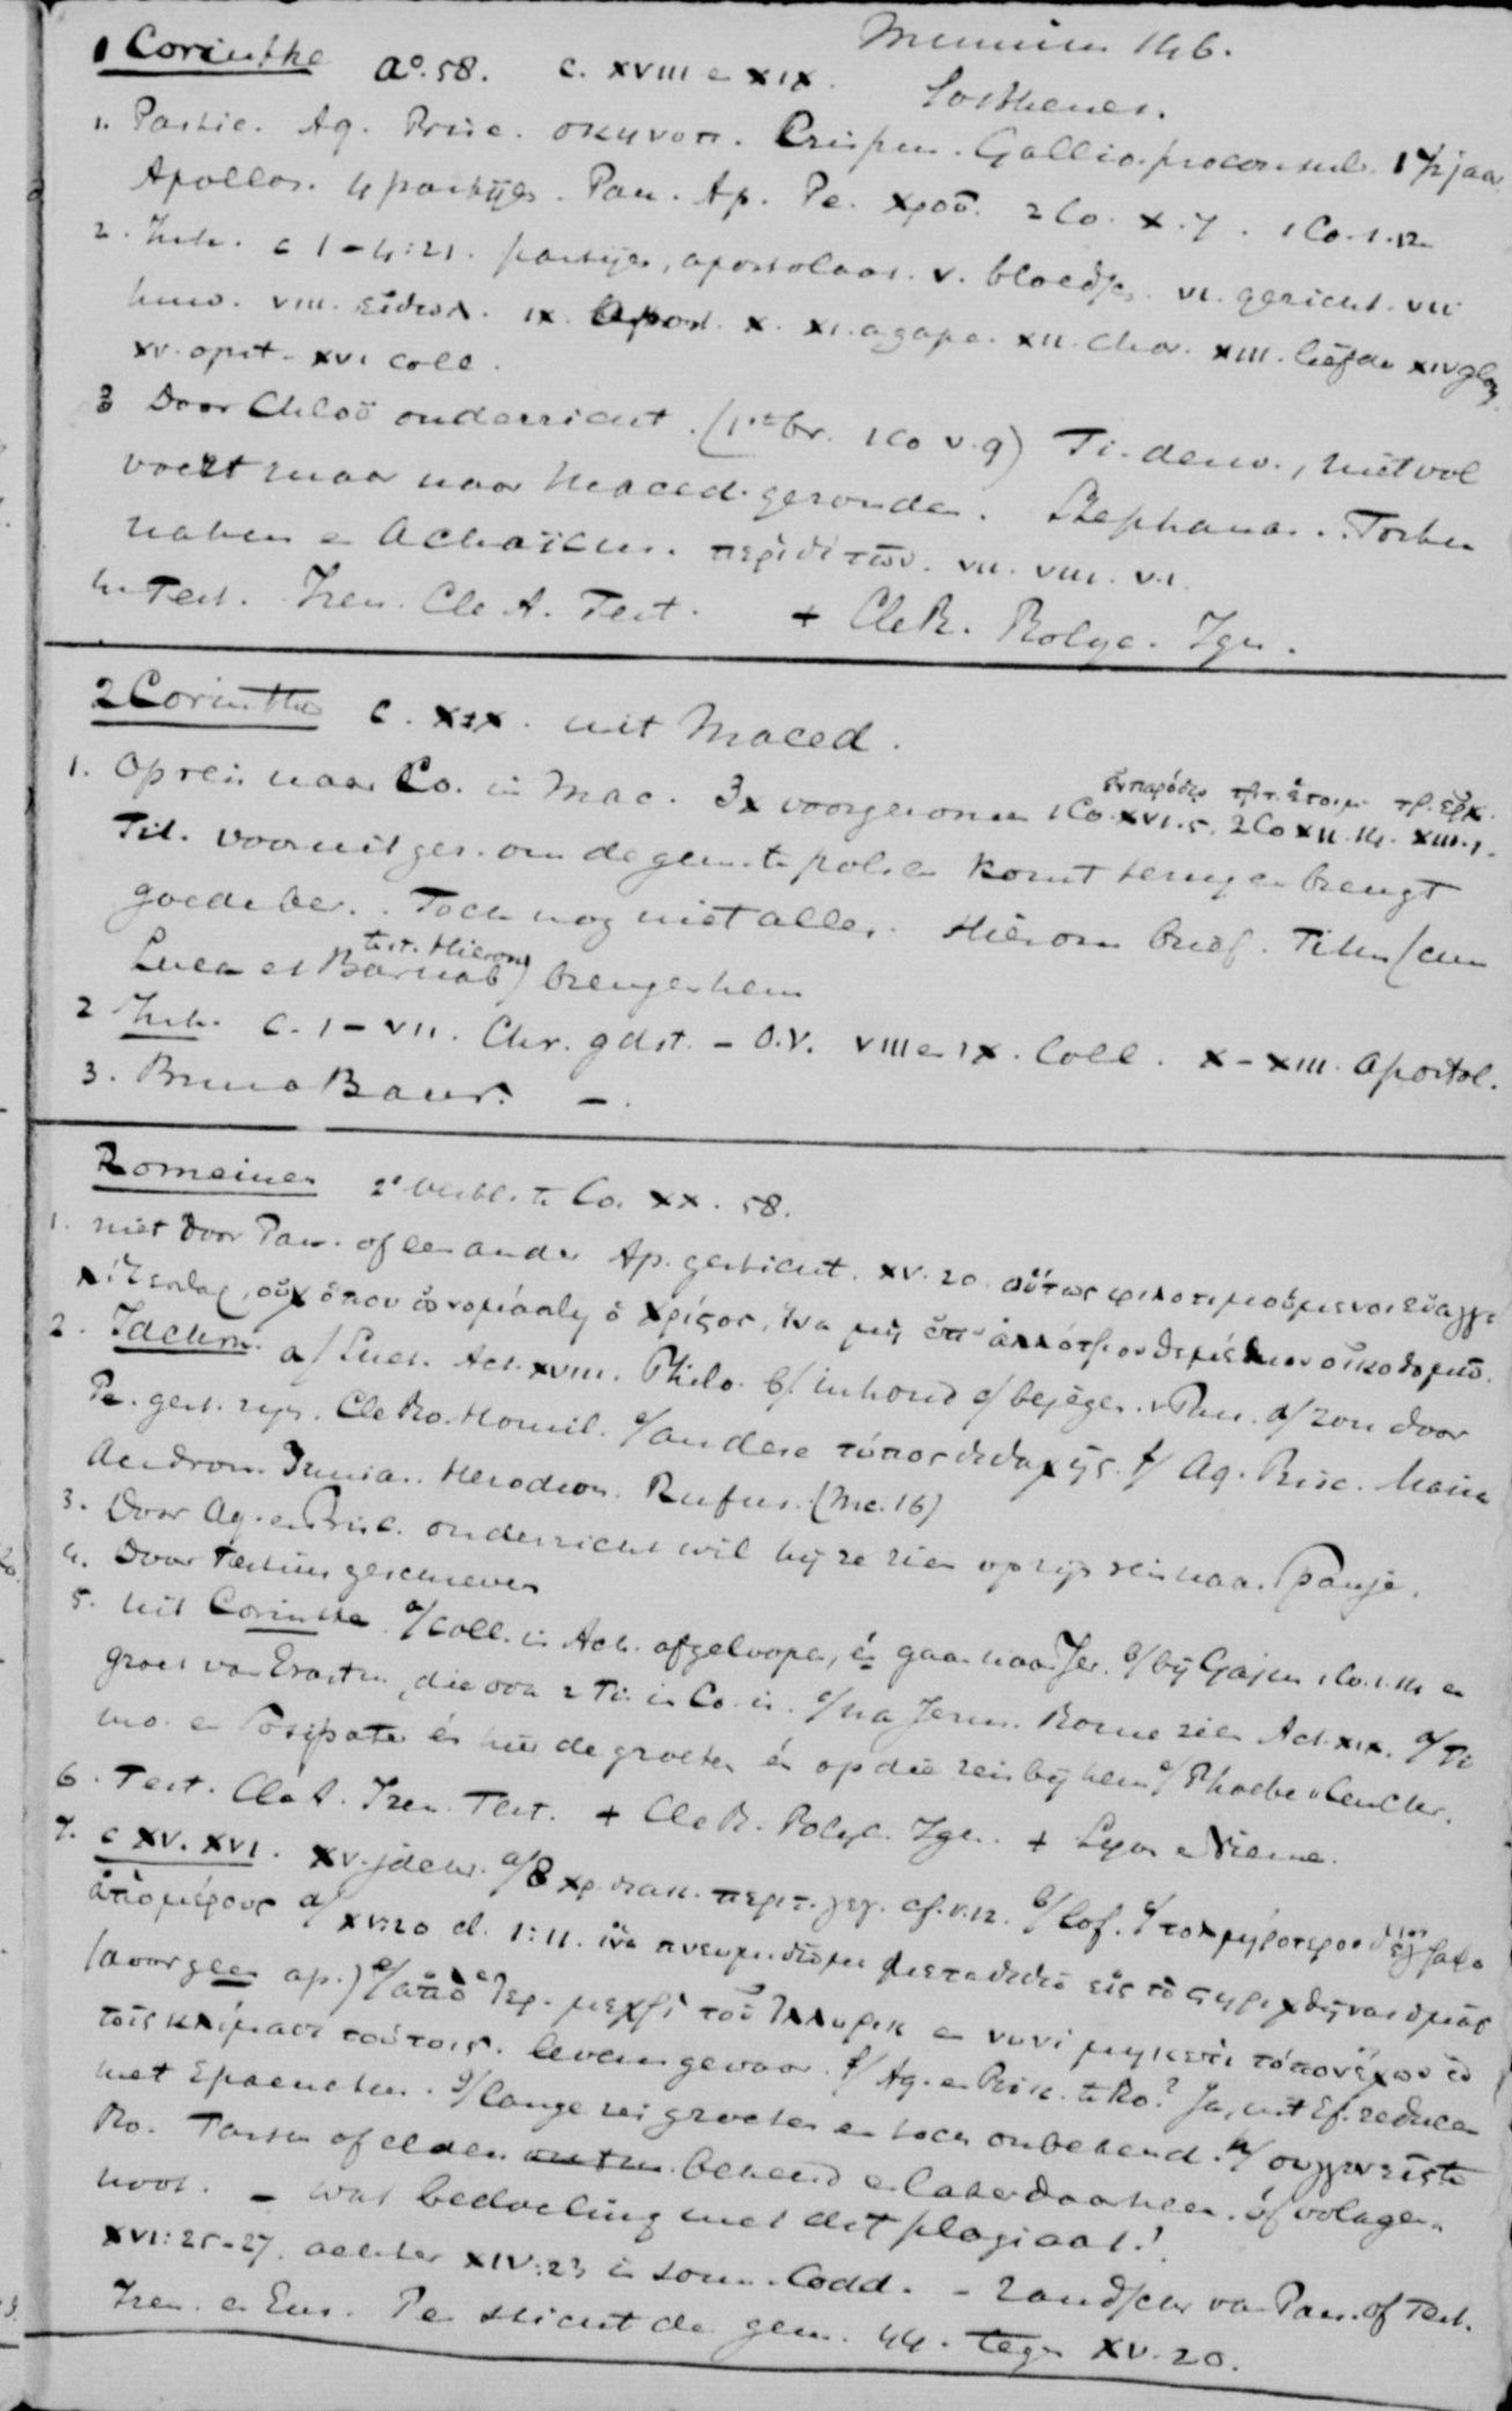 1 Corinthe Aº. 58. c. XVIII e XIX. 146.
Sosthenes.
1. Aq. Prisc. σκηνοπ. Crispus. Gallio. proconsul. 1½ jaar
Apollos. 4 partijen. Pau. Ap. Pe. Χροῦ. 2 Co. X.7. 1 Co. 1.12
2. Inh. c 1-4:21. partijen, apostolaat. V. bloedsch. VI. gericht. VII
huw. VIII. εἰδωλ. IX. Apost. X. XI. agape. XII. Char. XIII. liefde XIV
XV. opst. XVI coll.
3 Door Chloë onderricht. (1ste br. 1 Co V.9) Ti. derw., niet vol
voert maar naar Maced. gezonden. Stephanas. Fortu
natus e Achaïcus. περὶ δὲ τῶν. VII. VIII. VI.
4. Test. Iren. Cle A. Tert. + Cle R. Polyc. Ign.
2 Corinthe c. XIX. uit Maced.
1. Op reis naar Co. in Mac. 3x voorgenomen 1 Co. XVI.5. 2 Co XII.14. XIII.1.
ἐν παρόδῳ τρίτ. ἑτοίμ. τρ. ἔρχ.
Tit. vooruit gez. om de gem. te polsen komt terug en brengt
goede ber. Toch nog niet alles. Hierom brief. Titus (cum
Luca et Barnab test. Hieron) brengen hem
2 Inh. c. I-VII. Chr. gdst. - O.V. VIII e IX. Coll. X-XIII. Apostol.
3. Bruno Bauer. -.
Romeinen 2e verbl. te Co. XX. 58.
1. niet door Pau. of een ander Ap. gesticht. XV.20. οὕτως φιλοτιμούμενον εὐαγγε
λίζεσθαι, οὐχ ὅπου ὠνομάσθη ὁ Χρίστος, ἵνα μὴ ἐπ' ἀλλότριον θεμέλιον οἰκοδομῶ.
2. Jdchrn. a/ Suet. Act. XVIII. Philo. b/ inhoud c/ bejegen. v Pau. d/ zou door
Pe. gest. zijn. Cle Ro. Homil. e/ andere τύπος διδαχῆς. f/ Aq. Prisc. Maria
Andron. Junia. Herodion. Rufus. (Mc. 16)
3. Door Aq. en Prisc. onderricht wil hij ze zien op zijn reis naar Spanje.
4. Door Tertius geschreven
5. uit Corinthe. a/ coll. in Ach. afgeloopen, én gaan naar Jer. b/ bij Gajus 1 Co. 1.14 en
groet van Erastus, die ook 2 Ti. in Co. is. c/ na Jerus. Rome zien Act. XIX. d/ Ti
mo. en Sosipater én hier de groeten én op die reis bij hem e/ Phoebe v Cenchr.
6. Test. Cle A. Iren. Tert. + Cle R. Polyc. Ign. + Lyon e Vienne.
7. c XV. XVI. XV. jdchr. a/ 8 Χρ. διακ. περιτ. γεγ. cf. v.12. b/ Lof. c/ τολμηρότερον δὲ ἔγραψα
ἀπὸ μέρους d/ XV:20 cl. 1:11. ἵνα πνευματικὸν μεταδιδῶ εἰς τὸ στηριχθῆναι ὑμᾶς
(daar geen ap.) e/ ἀπὸ Ἱερ. μεχρὶ τοῦ Ἰλλυρικ e νυνὶ μηκέτι τόπον ἔχων ἐν
τοῖς κλίμασι τούτοις. levensgevaar. f/ Aq. e Prisc. te Ro.? Ja, uit Ef. reduces
met Epaenetus. g/ lange rei groeten en toch onbekend. h/ συγγενεῖς te
Ro. Tarsen of elders bekend en later daarheen. of volgen.
noot. - Wat bedoeling met dit plagiaat!
XVI:25-27. achter XIV:23 in somm. Codd. - randschr van Pau. of Tert.
Iren. en Eus. Pe sticht de gem. 44. tegen XV.20.